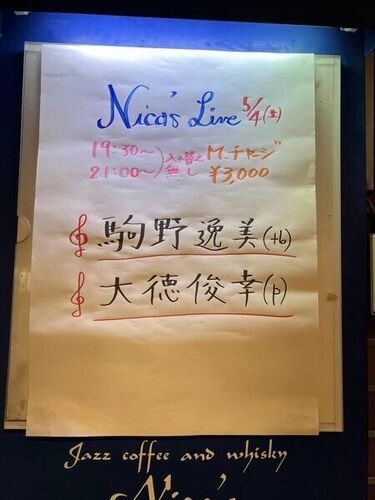 Nica's Live 5/4(土)
19:30〜 入れ替え M.チャージ
21:00〜 無し ¥3,000
駒野逸美(tb)
大徳俊幸(p)
Jazz coffee and whisky
Nica's